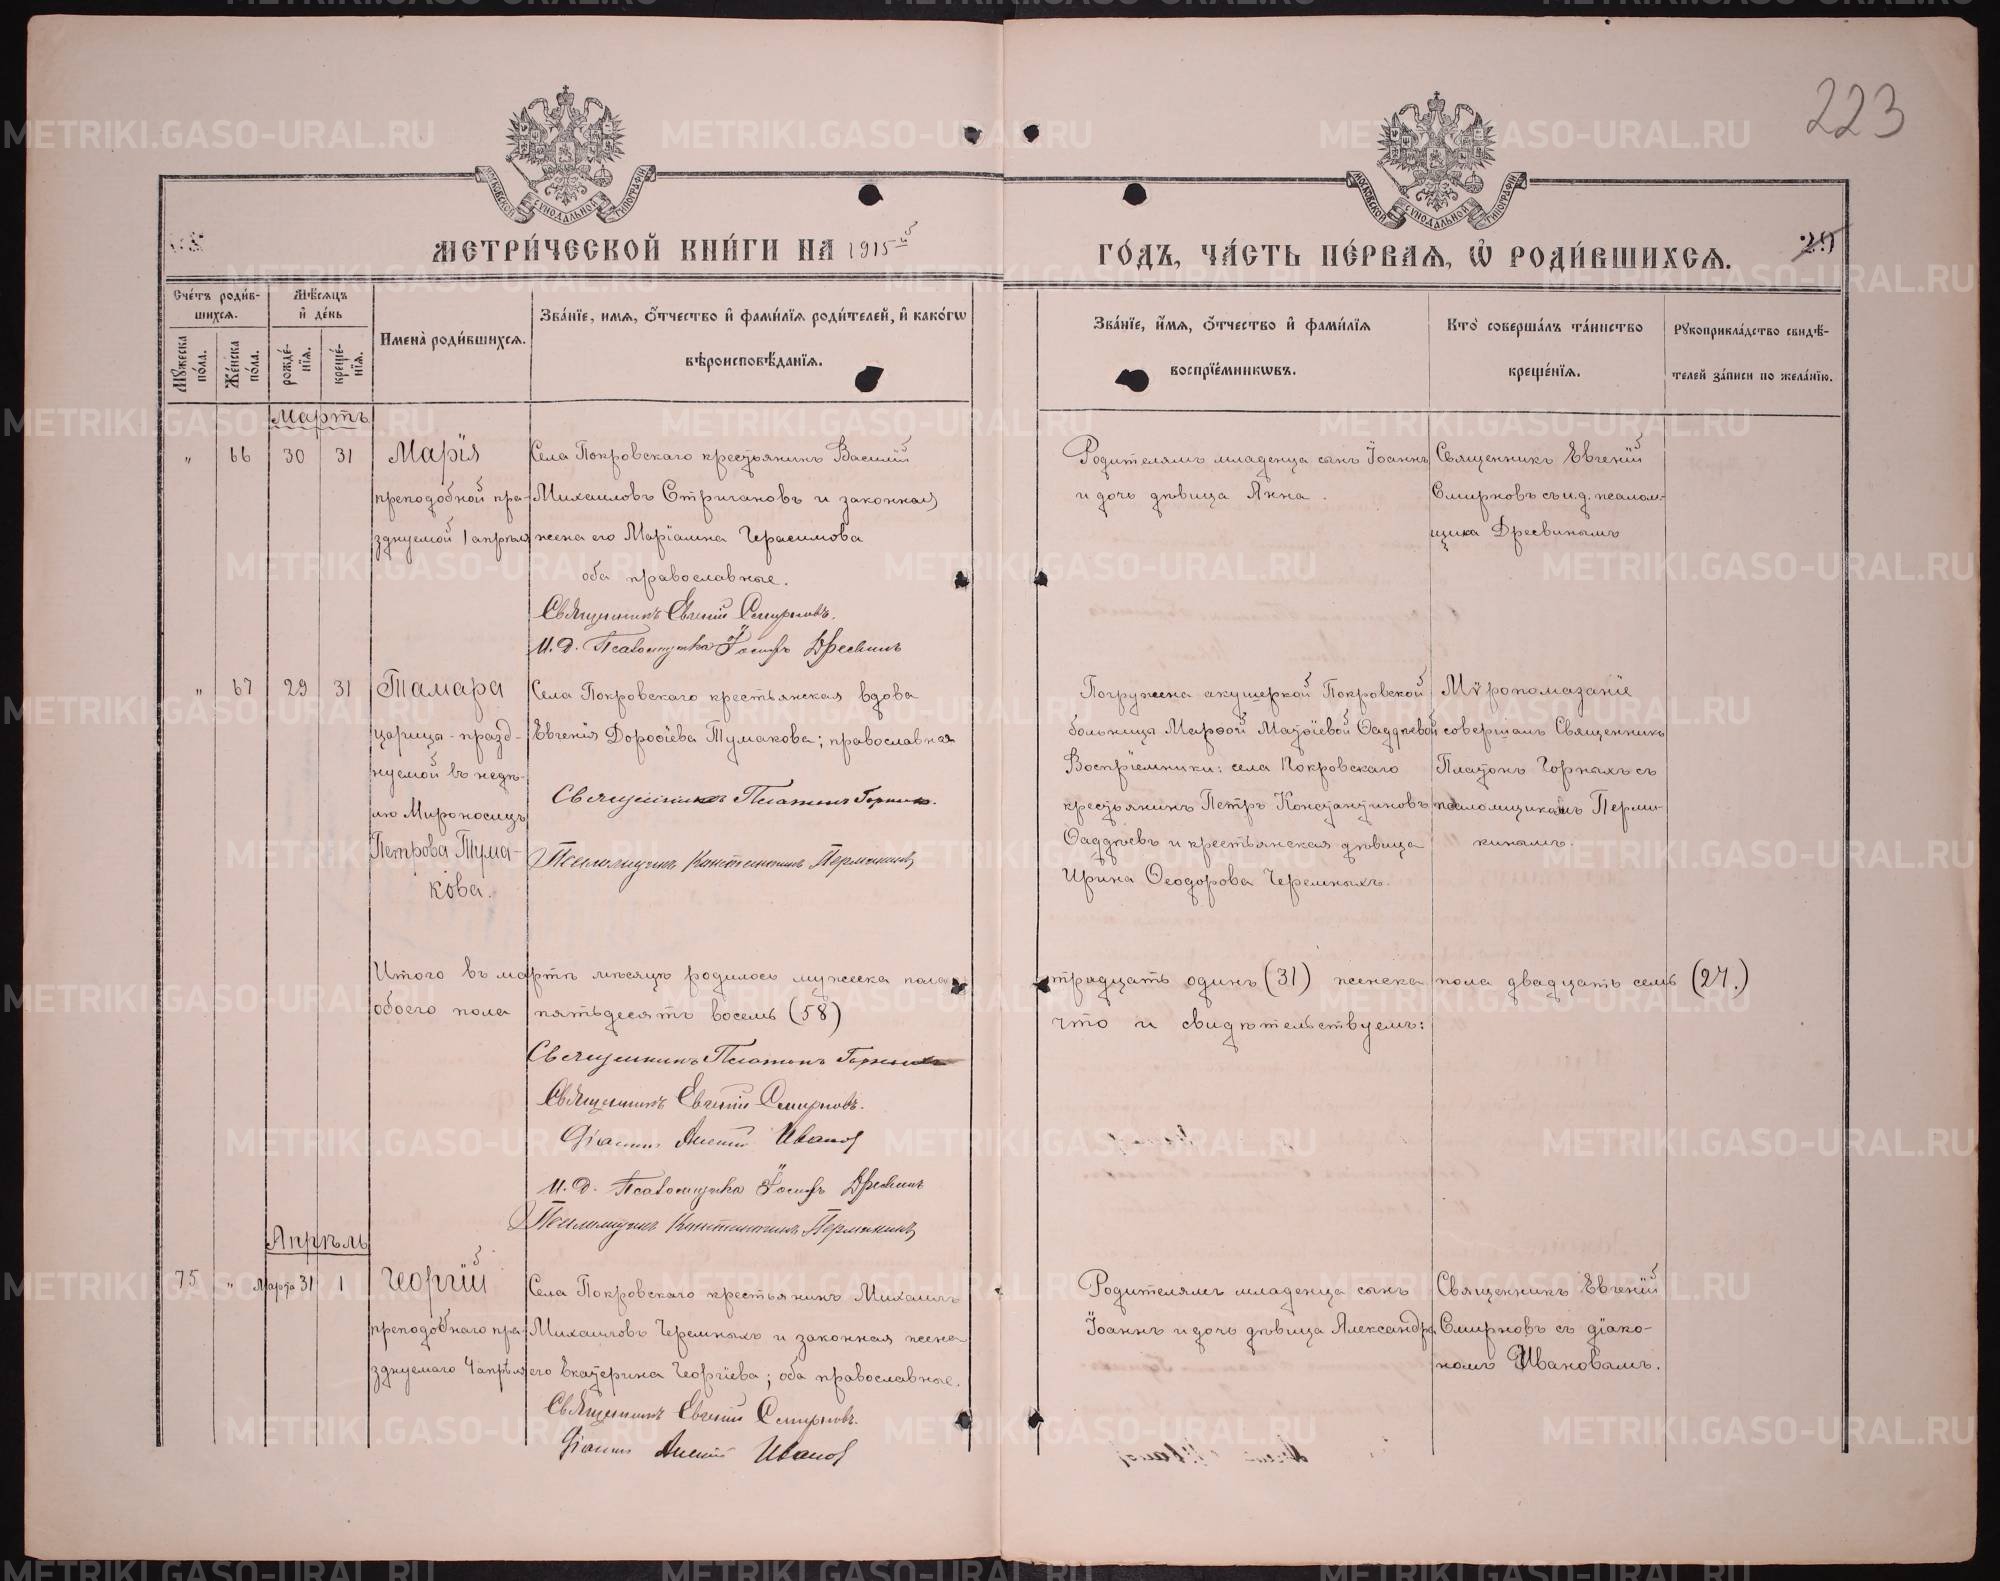 223
МОСКОВСКОЙ СѴНОДАЛЬНОЙ ТИПОГРАФІИ
МОСКОВСКОЙ СѴНОДАЛЬНОЙ ТИПОГРАФІИ
МЕТРИЧЕСКОЙ КНИГИ НА 1915ый ГОДЪ, ЧАСТЬ ПЕРВАЯ, Ѡ РОДИВШИХСЯ.
Счетъ родившихся.
Мужеска пола.
Женска пола.
Мѣсяцъ и день
рожденія.
крещенія.
Имена родившихся.
Званіе, имя, отчество и фамилія родителей, и какогѡ
вѣроисповѣданія.
Званіе, имя, отчество и фамилія
воспріемникѡвъ.
Кто совершалъ таинство
крещенія.
Рукоприкладство свидѣ-
телей записи по желанію.
Мартъ
" 66 30 31 Марія
преподобной пра-
зднуемой 1 апрѣля
Села Покровскаго крестьянинъ Василій
Михаиловъ Стригановъ и законная
жена его Маріамна Герасимова
оба православные.
Священникъ Евгеній Смирновъ.
И. д. Псаломщика Іосифъ Дресвинъ
Родителямъ младенца сынъ Іоаннъ
и дочь дѣвица Анна.
Священникъ Евгеній
Смирновъ съ и.д. псалом-
щика Дресвинымъ
" 67 29 31 Тамара
царицы - празд-
нуемой въ недѣ-
лю Мироносицъ
Петрова Тума-
кова.
Села Покровскаго крестьянская вдова
Евгенія Доросіева Тумакова; православная
Священникъ Платонъ Горныхъ.
Псаломщикъ Константинъ Пермякинъ
Погружена акушеркой Покровской
больницы Марѳой Матѳіевой Ѳаддѣевой
Воспріемники: села Покровскаго
крестьянинъ Петръ Константиновъ
Ѳаддѣевъ и крестьянская дѣвица
Ирина Ѳеодорова Черемныхъ.
Мѵропомазаніе
совершалъ Священникъ
Платонъ Горныхъ съ
псаломщикомъ Перми-
кинымъ.
Итого въ мартѣ мѣсяцѣ родилось мужеска пола тридцать одинъ (31) женска пола двадцать семь (27.)
обоего пола пятьдесятъ восемь (58) что и свидѣтельствуемъ:
Священникъ Платонъ Горныхъ
Священникъ Евгеній Смирновъ.
Діаконъ Алексій Ивановъ
И. д. Псаломщика Іосифъ Дресвинъ
Псаломщикъ Константинъ Пермякинъ
Апрѣль
75 " Марта 31 1 Георгій
преподобнаго пра-
зднуемаго 4 апрѣля
Села Покровскаго крестьянинъ Михаилъ
Михаиловъ Черемныхъ и законная жена
его Екатерина Георгіева; оба православные.
Священникъ Евгеній Смирновъ.
Діаконъ Алексій Ивановъ
Родителямъ младенца сынъ
Іоаннъ и дочь дѣвица Александра
Священникъ Евгеній
Смирновъ съ діако-
номъ Ивановымъ.
METRIKI.GASO-URAL.RU